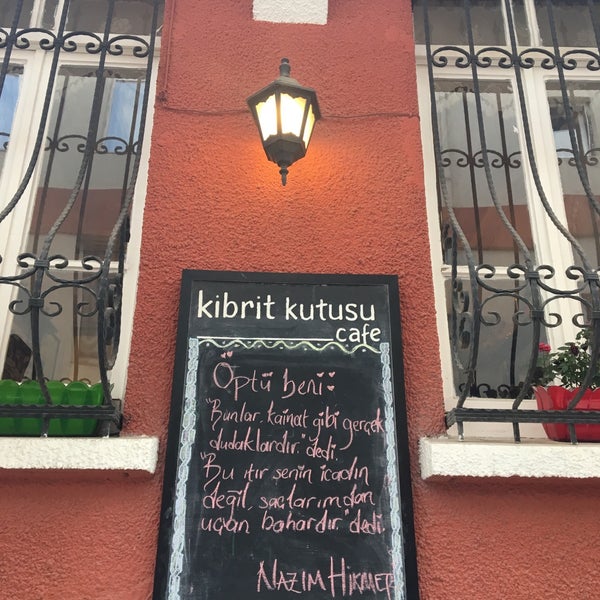 kibrit kutusu
cafe
Öptü beni:
"Bunlar, kainat gibi gerçek
dudaklardır." dedi.
"Bu ıtır senin icadın
değil, saçlarımdan
uçan bahardır." dedi.
NAZIM HİKMET